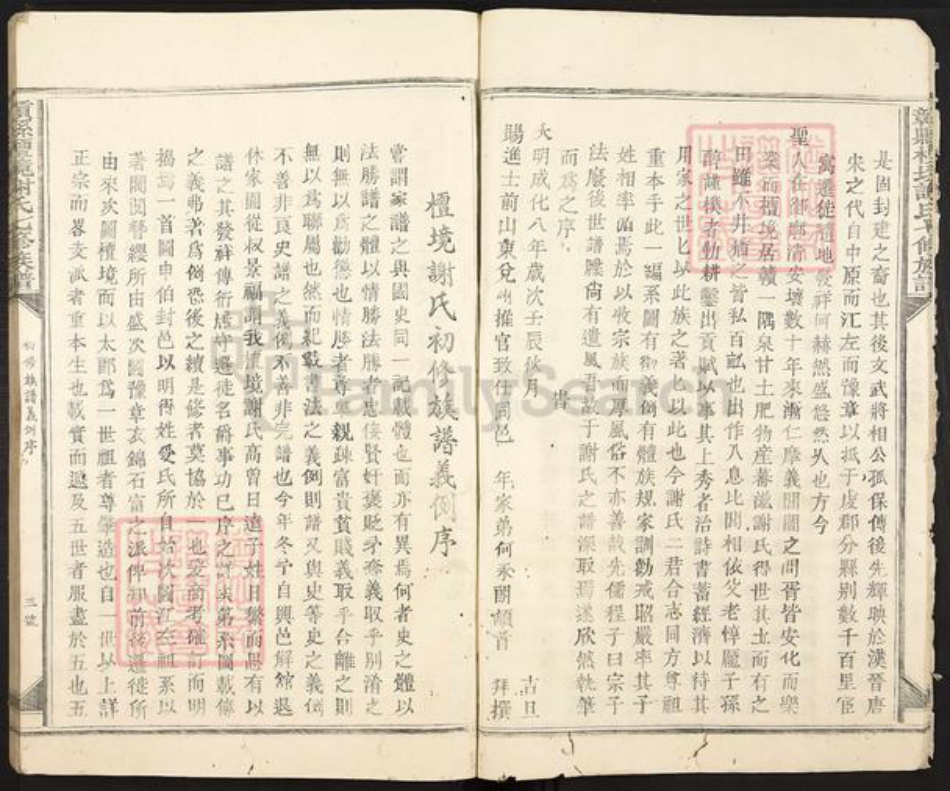 是固封建之裔也其後文武將相公孤保傅後先輝映於漢晉唐
宋之代自中原而江左而豫章以抵于虔郡分縣别數千百里宦
寓遷徙隨地發祥何赫然盛悠然乆也方今
聖人在御鄉清安壤數十年來漸仁摩義閭閻之間胥皆安化而樂
業而檀境居贛一隅泉甘土肥物産蕃滋謝氏得世其土而有之
田雖不井猶之皆私百畝也出作入息比閭相依父老惇龐子孫
醇謹樸者勤耕鑿出貢賦以事其上秀者治詩書蓄經濟以待其
用家之世匕以此族之著匕以此也今謝氏二君合志同方尊祖
重本手此一編系圖有<br>義例有體族規家訓勸戒昭嚴率其子
姓相率循焉於以收宗族而厚風俗不亦善哉先儒程子曰宗子
法廢後世譜牒尙有遺風吾故于謝氏之譜深取焉遂欣然執筆
而爲之序
大明成化八年歲次壬辰秋月 吉旦
賜進士前山東兖州推官致仕同邑 年家弟何 頓首 拜撰
檀境謝氏初修族譜義例序
嘗謂家譜之與國史同一記載體也而亦有異焉何者史之體以
法勝譜之體以情勝法勝者忠佞賢奸褒貶予奪義取乎别淆之
則無以爲勸懲也情勝者尊卑親疎富貴貧賤義取乎合離之則
無以爲聯屬也然而紀載書法之義例則譜又與史等史之義例
不善非良史譜之義例不善非完譜也今年冬予自興邑解舘退
休家園從叔景福謂我檀境謝氏高曾日遠子姓日繁而思有以
譜之其發祥傳衍居守遷徙名爵事功已序之詳矣第系圖載傳
之義弗著爲例恐後之續是修者莫協於一也爰商考確訂而明
揭焉一首圖申伯封邑以明得姓受氏所自始次圖江左 系以
著閥閱簪纓所由盛次圖豫章衣錦石富之派俾知前後遷徙所
由來次圖檀境而以太郎爲一世祖者尊肇造也自一世以上詳
正宗而畧支派者重本生也載實而 及五世者服盡於五也五
初修族譜義例序
三號